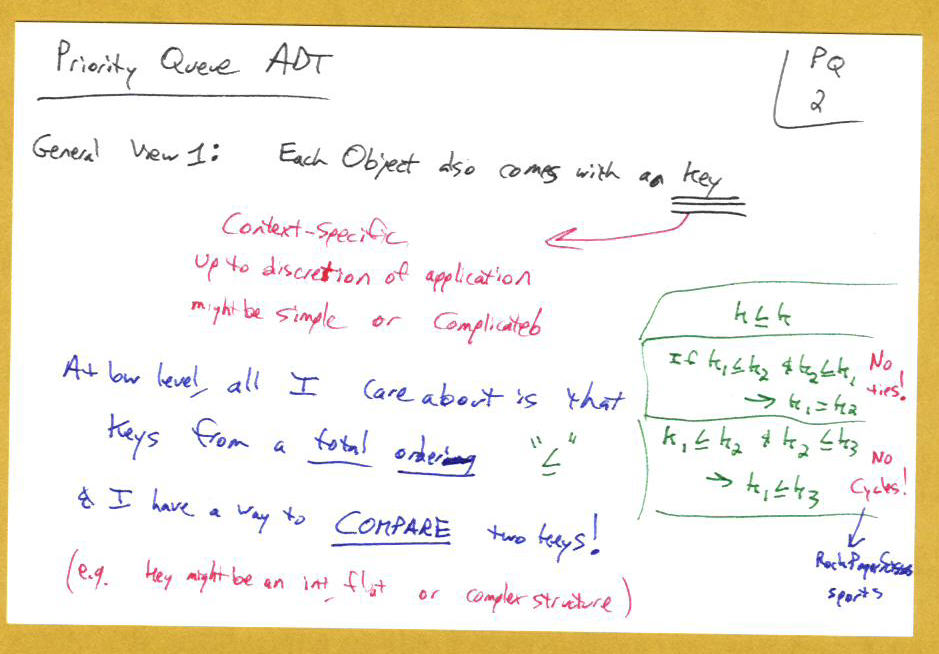 Priority Queue ADT
PQ
2
General View 1: Each Object also comes with an key
Context-Specific
up to discretion of application
might be simple or Complicated
At low level, all I care about is that
keys from a total ordering "≤"
& I have a way to COMPARE two keys!
(e.g. key might be an int, float or complex structure)
k ≤ k
If k₁ ≤ k₂ & k₂ ≤ k₁
→ k₁ = k₂
No
ties!
k₁ ≤ k₂ & k₂ ≤ k₃
→ k₁ ≤ k₃
No
Cycles!
Rock Paper Scissors
sports